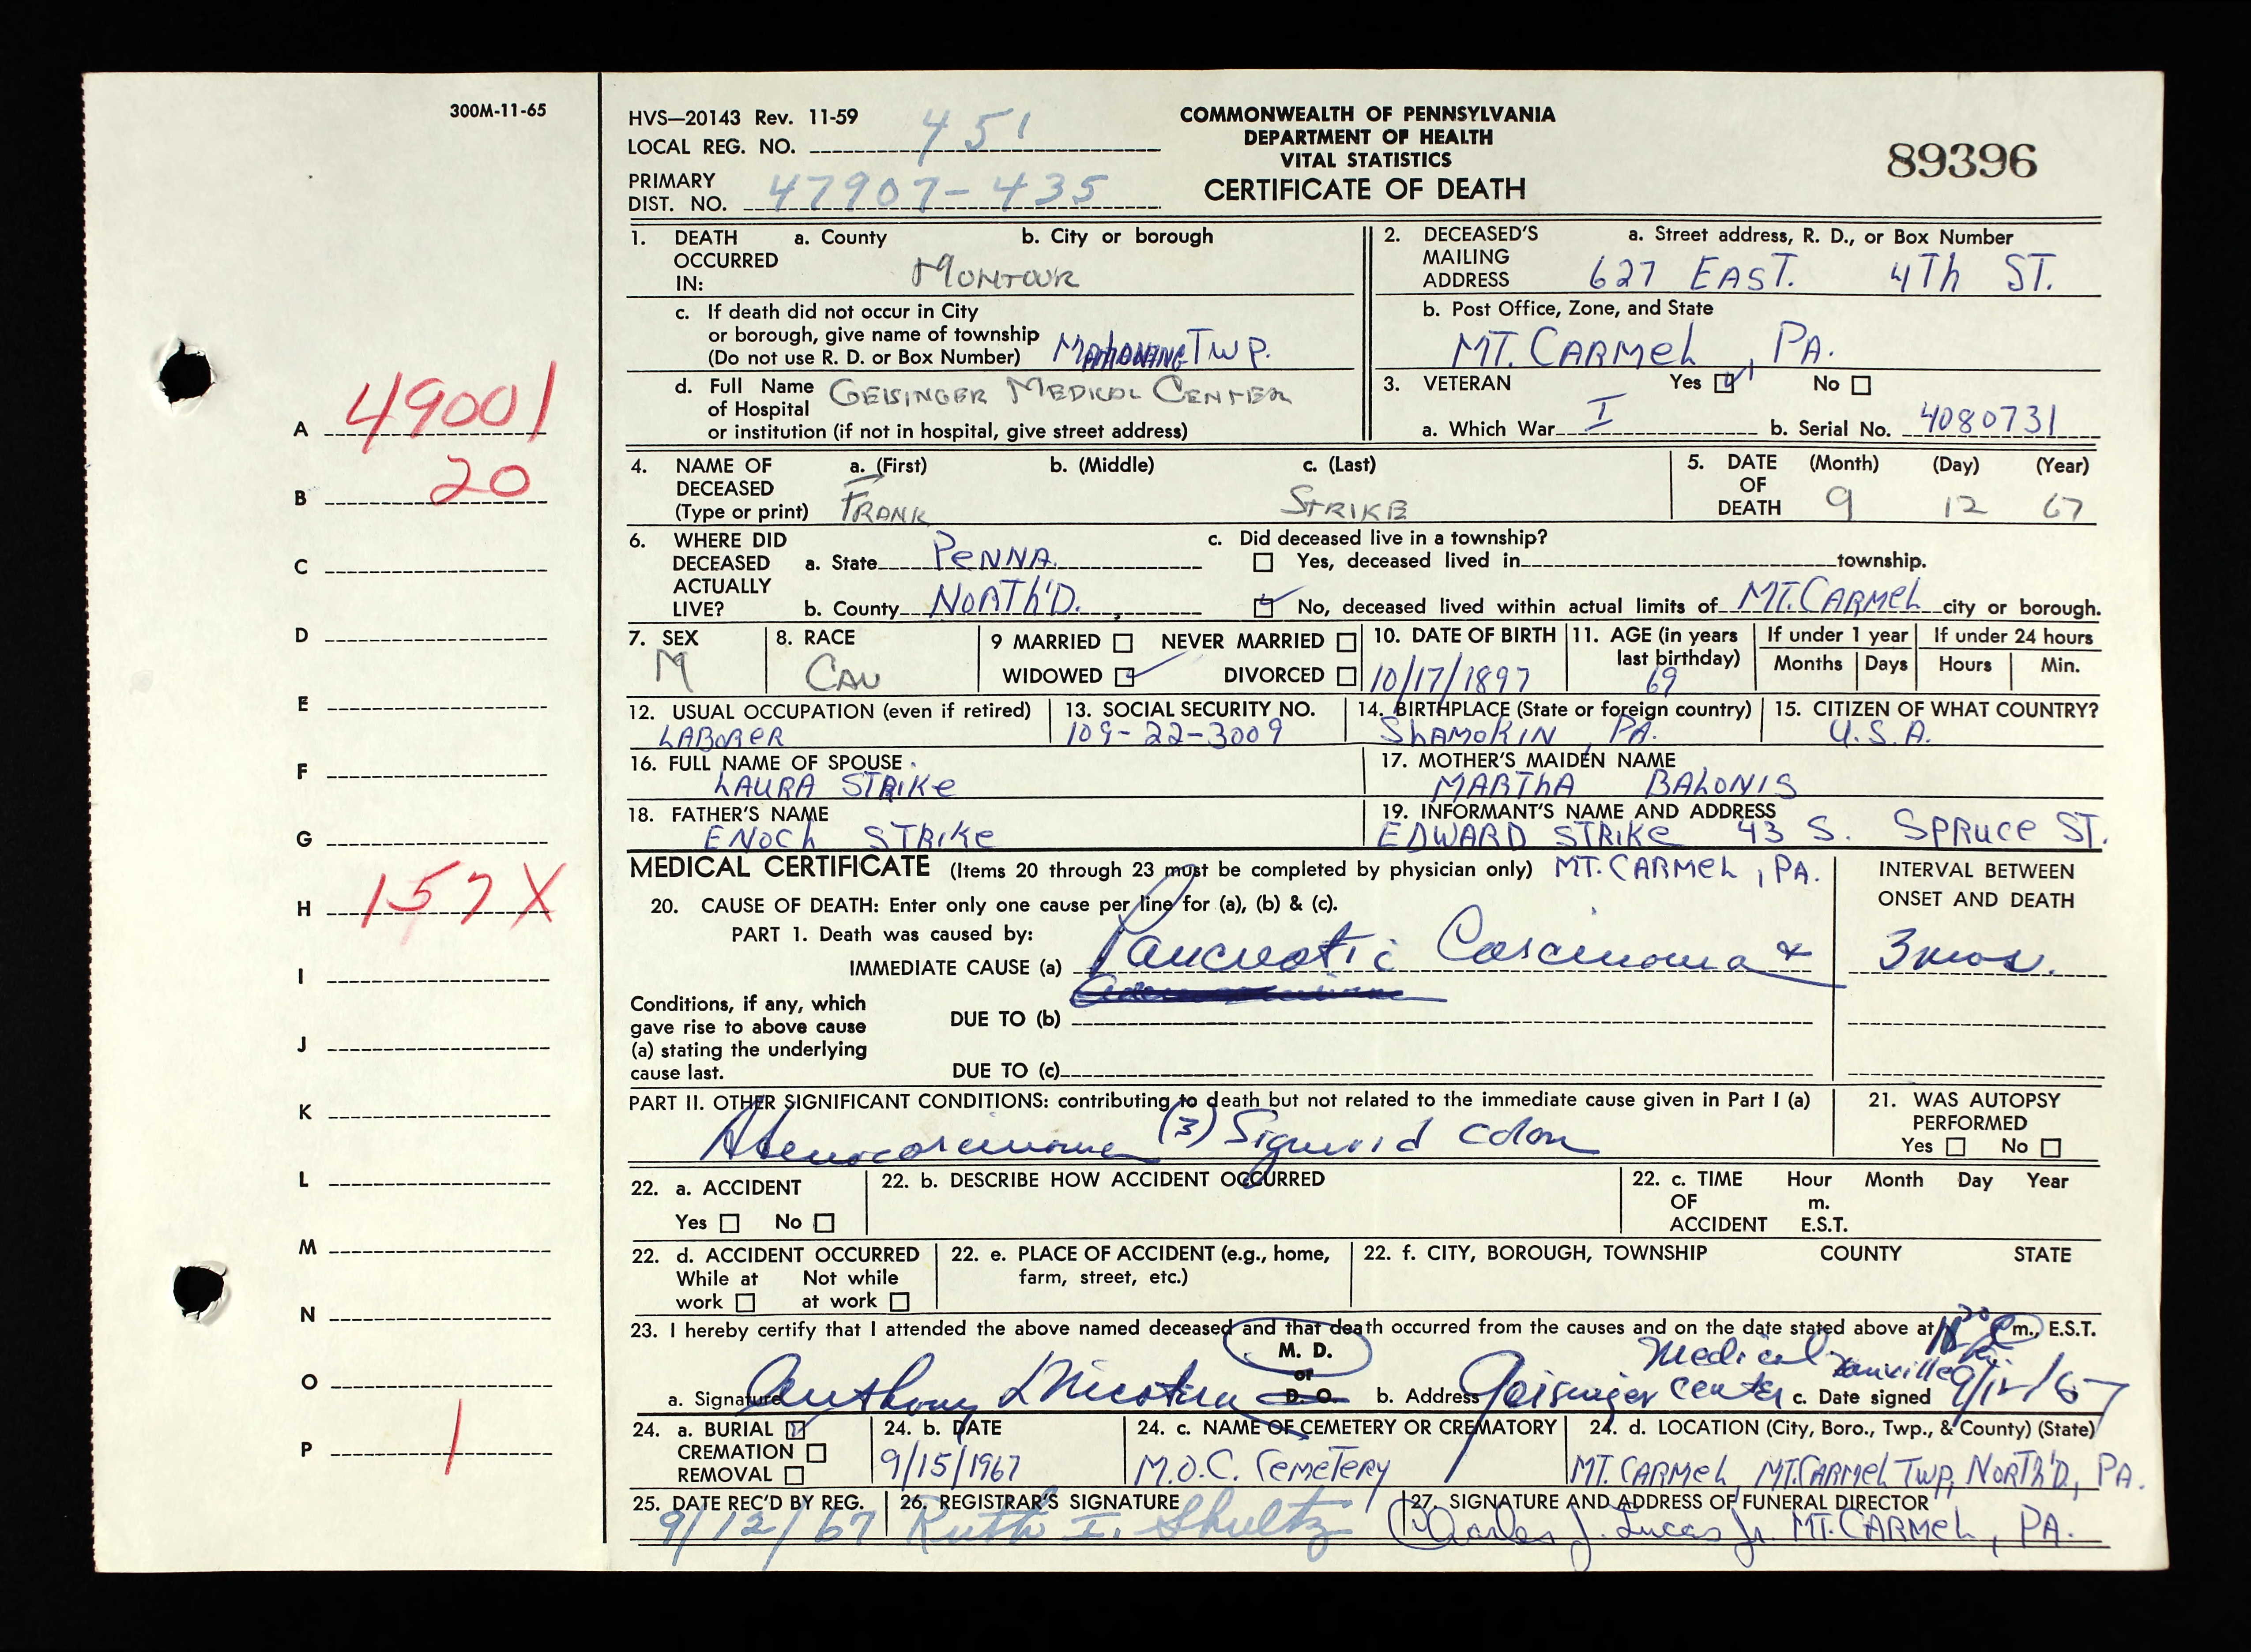 300M-11-65
HVS—20143 Rev. 11-59
LOCAL REG. NO. 451
PRIMARY DIST. NO. 47907-435
COMMONWEALTH OF PENNSYLVANIA
DEPARTMENT OF HEALTH
VITAL STATISTICS
CERTIFICATE OF DEATH
89396
1. DEATH OCCURRED IN: a. County b. City or borough
MONTOUR
c. If death did not occur in City
or borough, give name of township
(Do not use R. D. or Box Number) MAHONING TWP.
d. Full Name GEISINGER MEDICAL CENTER
of Hospital
or institution (if not in hospital, give street address)
2. DECEASED'S MAILING ADDRESS a. Street address, R. D., or Box Number
627 EAST. 4Th ST.
b. Post Office, Zone, and State
MT. CARMEL, PA.
3. VETERAN Yes No
a. Which War I b. Serial No. 4080731
4. NAME OF DECEASED (Type or print) a. (First) b. (Middle) c. (Last)
FRANK STRIKE
5. DATE OF DEATH (Month) (Day) (Year)
9 12 67
6. WHERE DID DECEASED ACTUALLY LIVE?
a. State PENNA.
b. County NORTh'D.
c. Did deceased live in a township?
Yes, deceased lived in township.
No, deceased lived within actual limits of MT. CARMEL city or borough.
7. SEX
M
8. RACE
CAU
9 MARRIED NEVER MARRIED
WIDOWED DIVORCED
10. DATE OF BIRTH
10/17/1897
11. AGE (in years last birthday)
69
If under 1 year
Months Days
If under 24 hours
Hours Min.
12. USUAL OCCUPATION (even if retired)
LABORER
13. SOCIAL SECURITY NO.
109-22-3009
14. BIRTHPLACE (State or foreign country)
SHAMOKIN, PA.
15. CITIZEN OF WHAT COUNTRY?
U.S.A.
16. FULL NAME OF SPOUSE
LAURA STRIKE
17. MOTHER'S MAIDEN NAME
MARTHA BALONIS
18. FATHER'S NAME
ENOCH STRIKE
19. INFORMANT'S NAME AND ADDRESS
EDWARD STRIKE 43 S. SPRUCE ST.
MT. CARMEL, PA.
MEDICAL CERTIFICATE (Items 20 through 23 must be completed by physician only)
INTERVAL BETWEEN
ONSET AND DEATH
20. CAUSE OF DEATH: Enter only one cause per line for (a), (b) & (c).
PART 1. Death was caused by:
IMMEDIATE CAUSE (a) Pancreatic Carcinoma &
3 mos.
Conditions, if any, which
gave rise to above cause
(a) stating the underlying
cause last.
DUE TO (b)
DUE TO (c)
PART II. OTHER SIGNIFICANT CONDITIONS: contributing to death but not related to the immediate cause given in Part I (a)
Adenocarcinoma (3) Sigmoid colon
21. WAS AUTOPSY
PERFORMED
Yes No
22. a. ACCIDENT
Yes No
22. b. DESCRIBE HOW ACCIDENT OCCURRED
22. c. TIME OF ACCIDENT Hour Month Day Year
m.
E.S.T.
22. d. ACCIDENT OCCURRED
While at work Not while at work
22. e. PLACE OF ACCIDENT (e.g., home,
farm, street, etc.)
22. f. CITY, BOROUGH, TOWNSHIP COUNTY STATE
23. I hereby certify that I attended the above named deceased and that death occurred from the causes and on the date stated above at m., E.S.T.
a. Signature Anthony M. D. or D. O.
b. Address Geisinger Medical Center Danville
c. Date signed 9/12/67
24. a. BURIAL
CREMATION
REMOVAL
24. b. DATE
9/15/1967
24. c. NAME OF CEMETERY OR CREMATORY
M.O.C. CEMETERY
24. d. LOCATION (City, Boro., Twp., & County) (State)
MT. CARMEL, MT. CARMEL TWP, NORTh'D, PA.
25. DATE REC'D BY REG.
9/12/67
26. REGISTRAR'S SIGNATURE
Ruth I. Shultz
27. SIGNATURE AND ADDRESS OF FUNERAL DIRECTOR
Charles J. Lucas Jr. MT. CARMEL, PA.
A 49001
B 20
C
D
E
F
G
H 157X
I
J
K
L
M
N
O
P 1